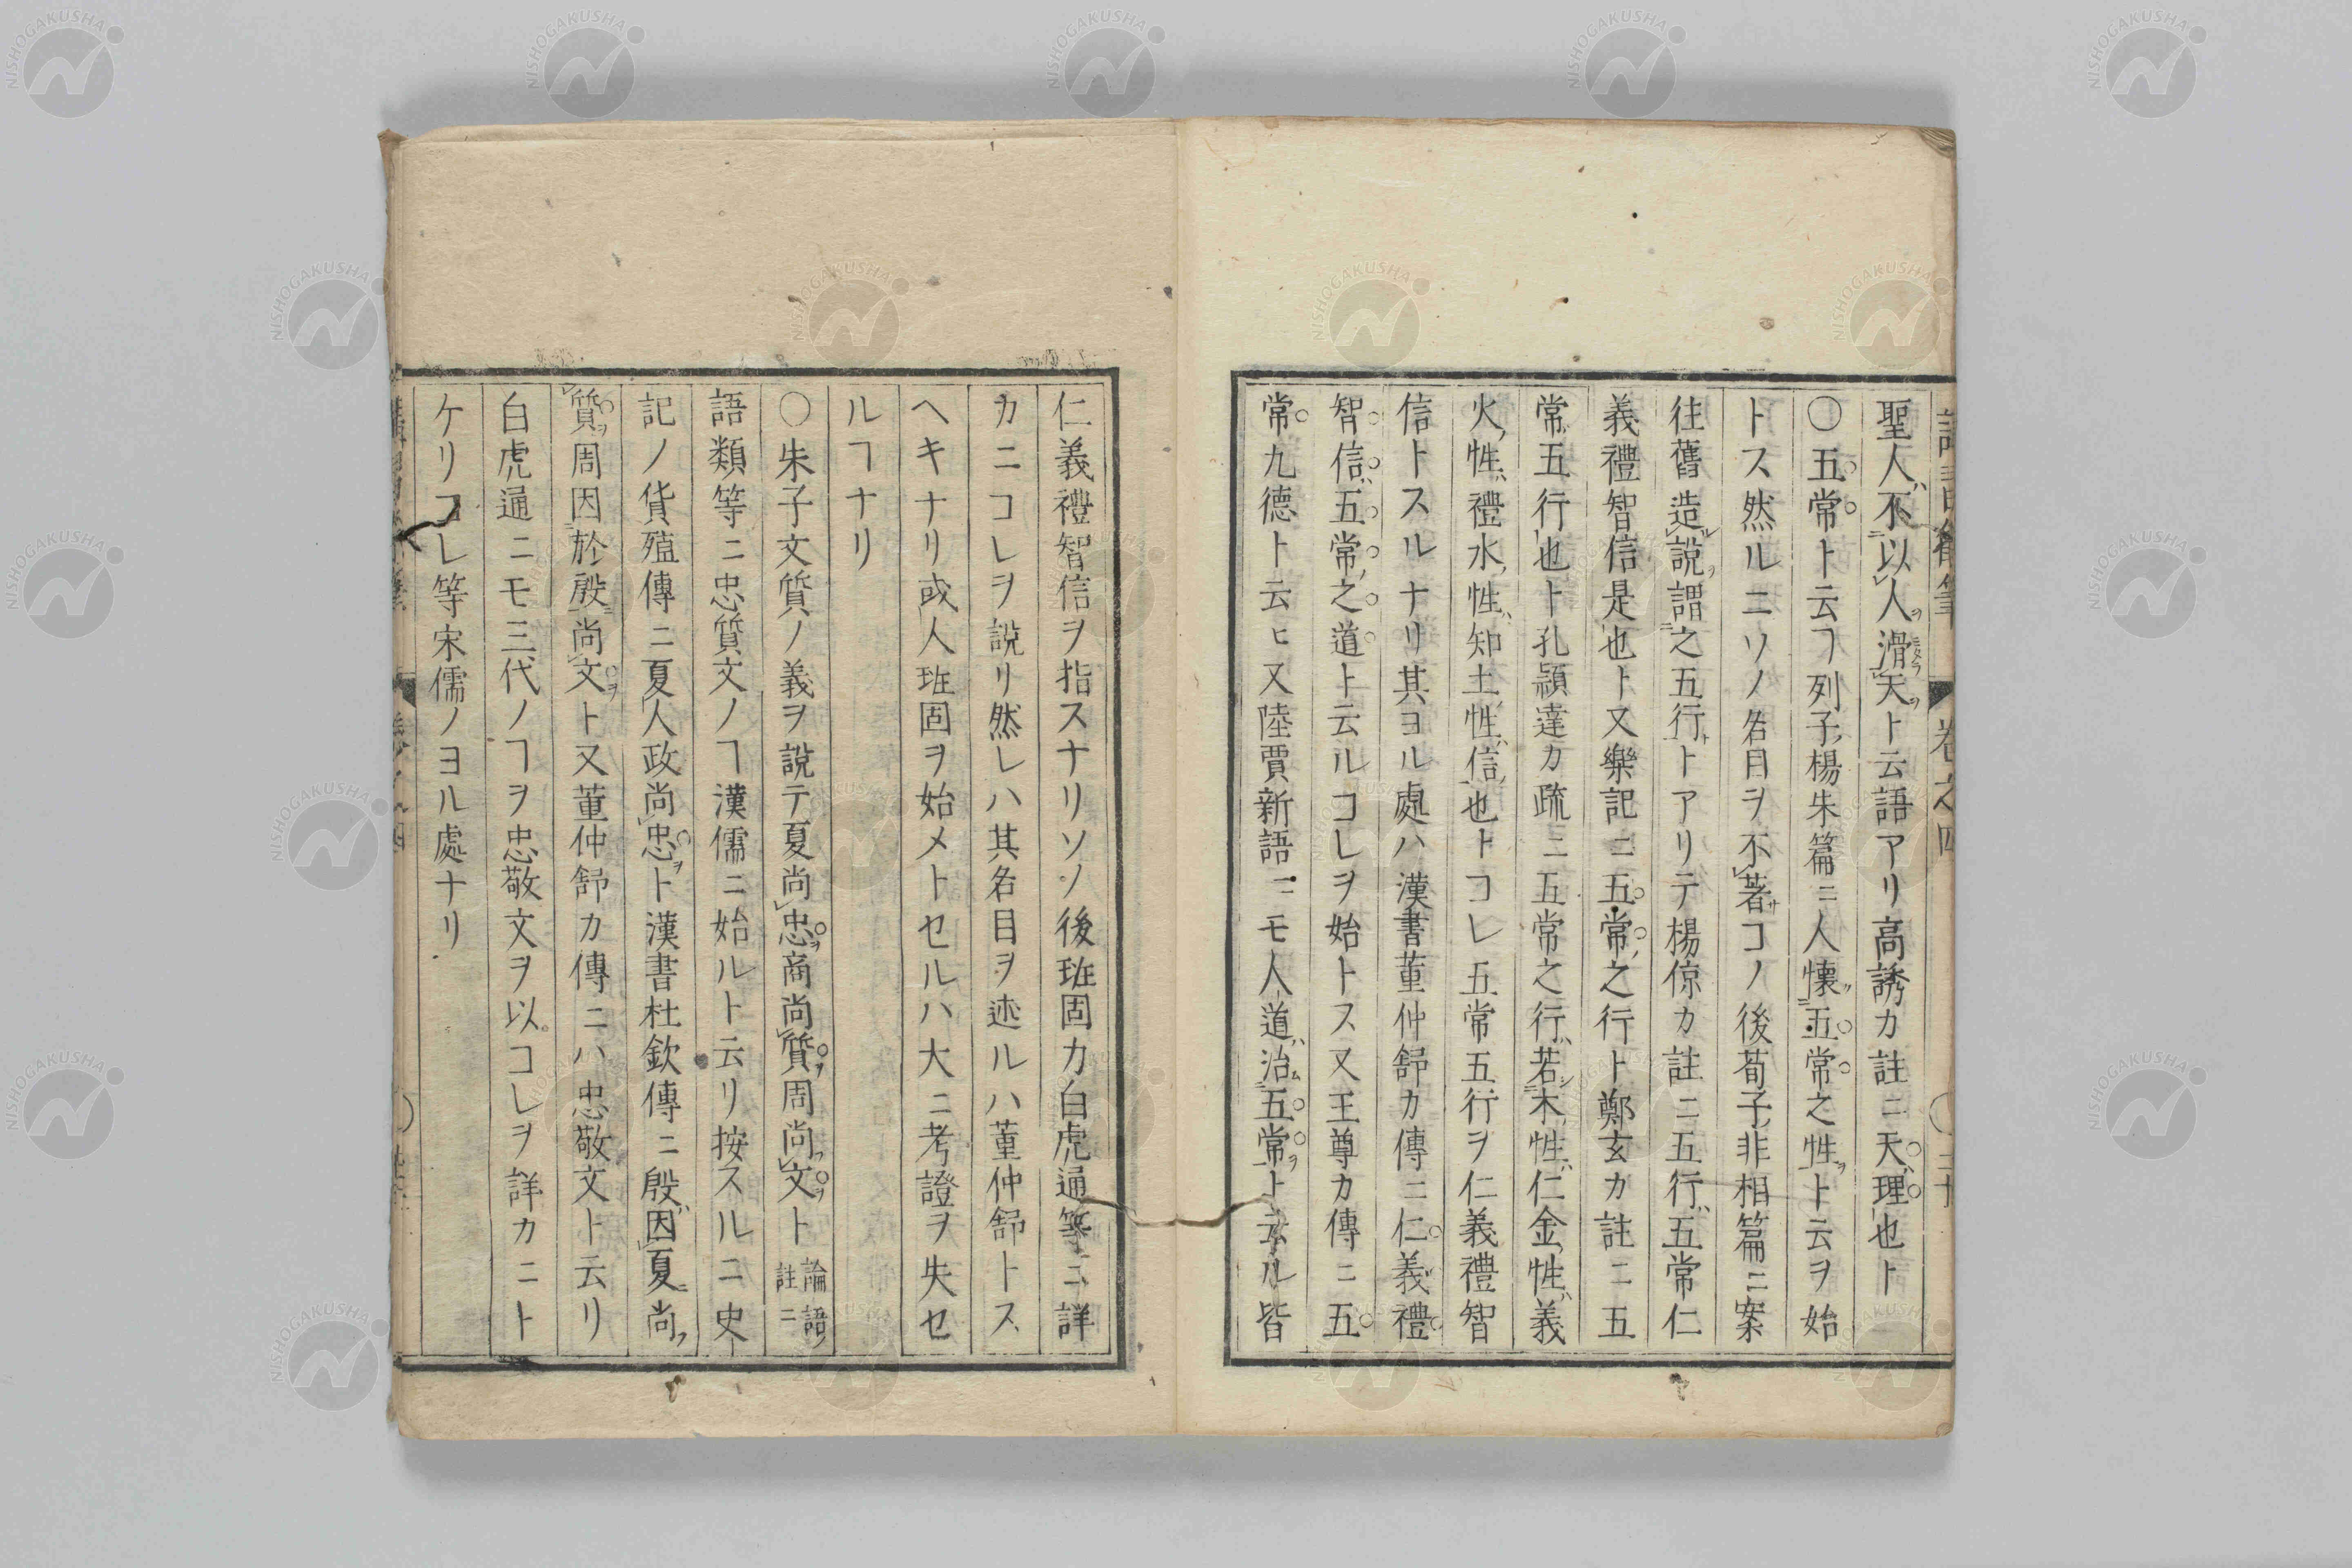 聖人ハ不以人ヲ滑天ヲト云語アリ高誘カ註ニ天理也ト
〇五常ト云ヿ列子楊朱篇ニ人懷五常之性ヲト云ヲ始
トス然ルニソノ名目ヲ不著コノ後荀子非相篇ニ案
往舊造說謂之五行トアリテ楊倞カ註ニ五行ハ五常仁
義禮智信是也ト又樂記ニ五常之行ト鄭玄カ註ニ五
常五行也ト孔頴達カ疏ニ五常之行ハ若木性ハ仁金性ハ義
火性ハ禮水性ハ知土性ハ信也トコレ五常五行ヲ仁義禮智
信トスルナリ其ヨル處ハ漢書董仲舒カ傳ニ仁義禮
智信五常之道ト云ルコレヲ始トス又王尊カ傳ニ五
常九德ト云ヒ又陸賈新語ニモ人道ハ治五常ヲト云ル皆
仁義禮智信ヲ指スナリソノ後班固カ白虎通等ニ詳
カニコレヲ說リ然レハ其名目ヲ述ルハ董仲舒トス
ヘキナリ或人班固ヲ始メトセルハ大ニ考證ヲ失セ
ルヿナリ
〇朱子文質ノ義ヲ說テ夏尚忠ヲ商尚質ヲ周尚文ヲト論語ノ註ニ
語類等ニ忠質文ノヿ漢儒ニ始ルト云リ按スルニ史
記ノ貨殖傳ニ夏人政尚忠ヲト漢書杜欽傳ニ殷ハ因夏尚
質ヲ周因於殷尚文ヲト又董仲舒カ傳ニハ忠敬文ト云リ
白虎通ニモ三代ノヿヲ忠敬文ヲ以コレヲ詳カニト
ケリコレ等宋儒ノヨル處ナリ
卷之四